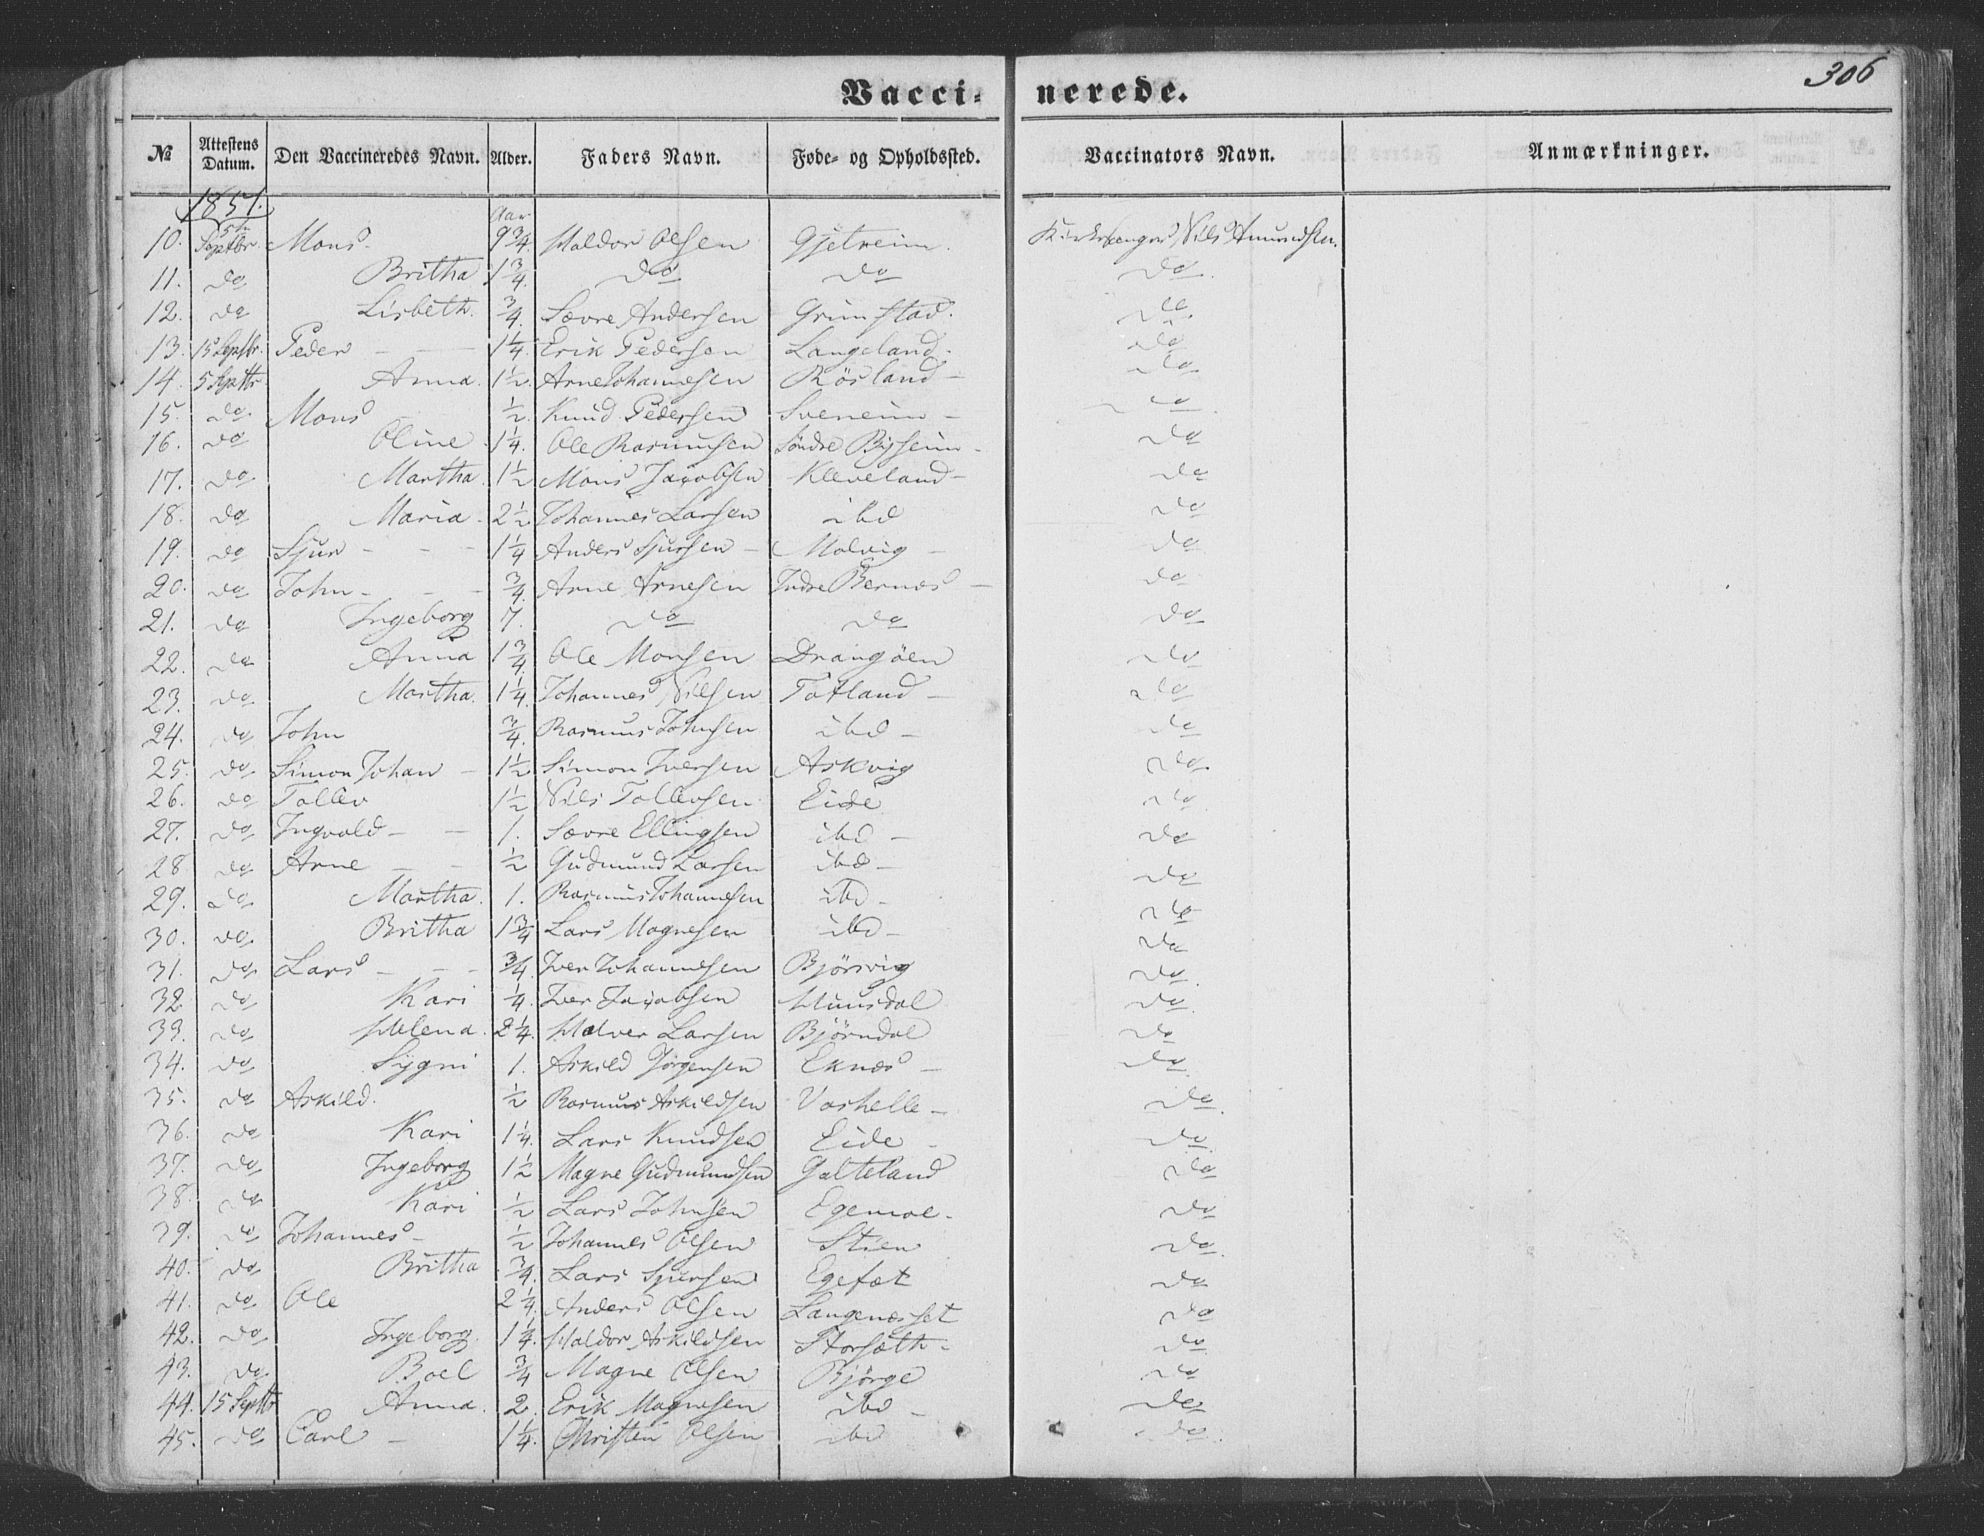 306
Vacci- nerede.
№ Attestens Datum. Den Vaccineredes Navn. Alder. Faders Navn. Føde- og Opholdssted. Vaccinators Navn. Anmærkninger.
1851. Aar
10. 5te Septbr. Mons 9 3/4. Haldor Olsen Gjetreim. Kirkesanger Nils Amundsen.
11. do Britha 1 3/4. do do do
12. do Lisbeth. 3/4. Sævre Andersen Grimstad. do
13. 15 Septbr. Peder - - 1 1/4. Erik Pedersen Langeland. do
14. 5 Septbr. Anna. 1 1/2. Arne Johannesen Rösland - do
15. do Mons 1/2. Knud Pedersen - do
16. do Oline 1 1/4. Ole Rasmusen Söndre - do
17. do Martha 1 1/2 Mons Jacobsen Kleveland - do
18. do Maria. 2 1/2 Johannes Larsen ibd do
19. do Sjur - - - 1 1/4 Anders Sjursen - Molvig - do
20. do John - - - 3/4. Arne Arnesen Indre Bernæs - do
21. do Ingeborg 7. do do do
22. do Anna 1 3/4 Ole Monsen Drangöen do
23. do Martha. 1 1/4. Johannes Nilsen Totland - do
24. do John 3/4. Rasmus Johnsen ibd - do
25. do Simon Johan - 1 1/2 Simon Iversen Askvig do
26. do Tollev 1 1/2 Nils Tollevsen Eide do
27. do Ingvald - - 1. Sævre Ellingsen ibd - do
28 do Arne - - 1/2 Gudmund Larsen ibd - do
29. do Martha. 1. Rasmus Johannesen ibd - do
30. do Britha 1 3/4 Lars Magnesen ibd - do
31. do Lars - - - 3/4. Iver Johannesen Björsvig do
32 do Kari 1/4. Iver Jacobsen Hunsdal do
33. do Helena. 2 1/4. Halver Larsen Björndal do
34. do Sygni 1. Askild Jörgensen Eknæs - do
35. do Askild. 1/2 Rasmus Askildsen Vashelle - do
36. do Kari 1 1/4. Lars Knudsen Eide - do
37. do Ingeborg 1 1/2 Magne Gudmundsen Galteland do
38. do Kari 1/2 Lars Johnsen Egemoe - do
39. do Johannes - 1/2 Johannes Olsen Stien do
40. do Britha 3/4. Lars Sjursen Egesæt do
41. do Ole 2 1/4. Anders Olsen Langenæsset do
42. do Ingeborg. 1 1/4. Haldor Askildsen Storsæth - do
43. do Boel 3/4 Magne Olsen Björge do
44. 15 Septbr Anna. 2. Erik Magnesen ibd - do
45. do Carl - 1 1/4. Christen Olsen ibd do